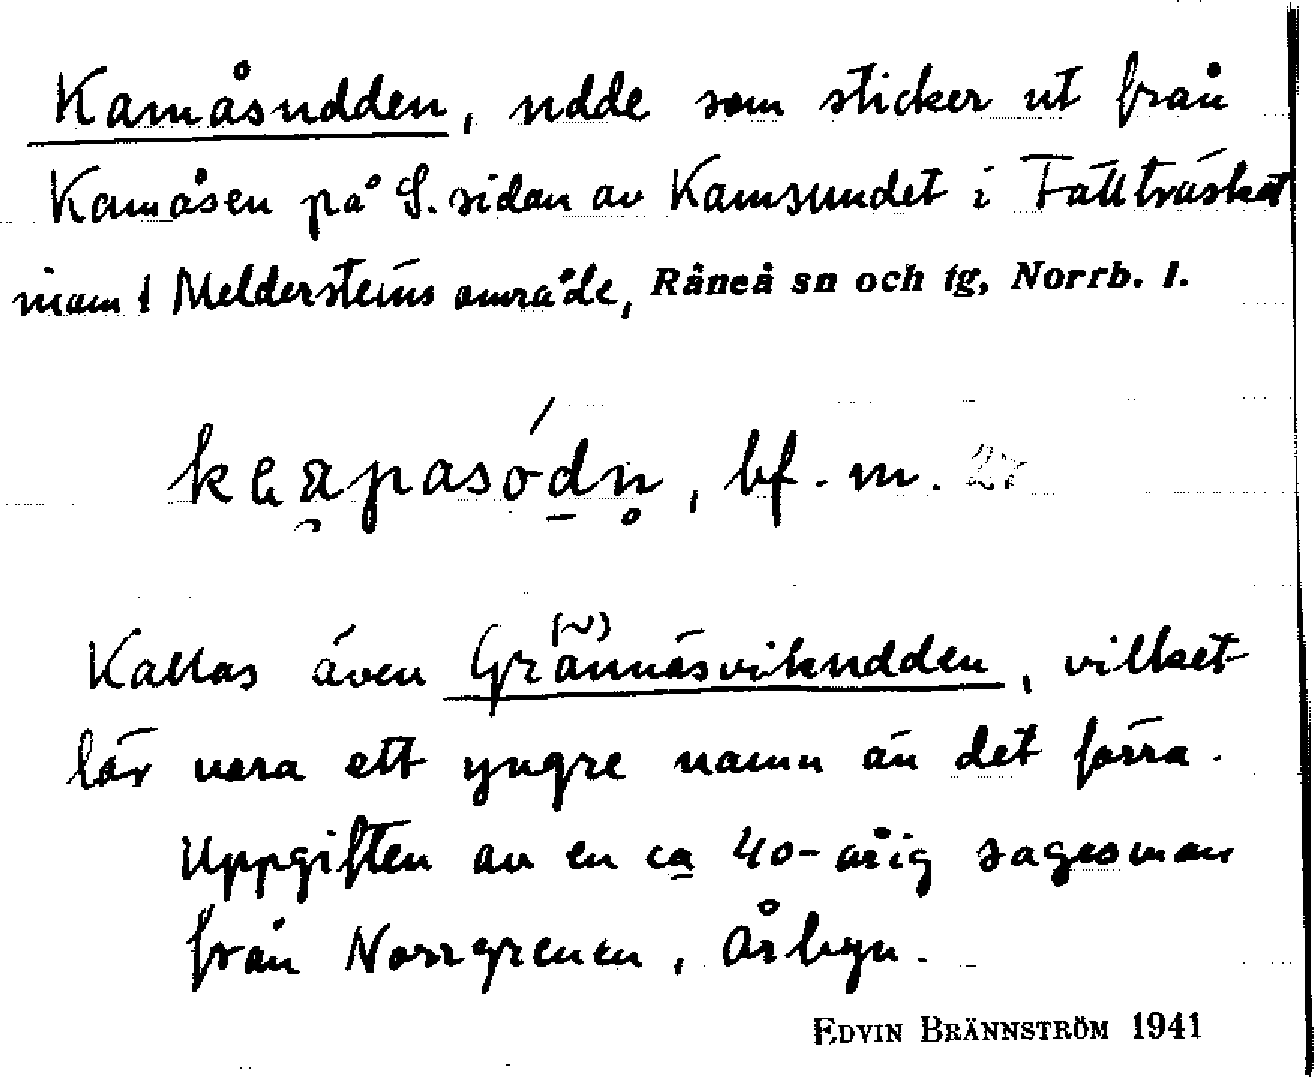 Kamåsudden, udde som sticker ut från
Kamåsen på S. sidan av Kamsundet i Fällträsket
inom Meldersteins område, Råneå sn och tg, Norrb. l.
bf. m.
Kallas även Grännäsvikudden, vilket
lär vara ett yngre namn än det förra.
Uppgiften av en ca 40-årig sagesman
från Norrgrenen, Årbyn.
EDVIN BRÄNNSTRÖM 1941